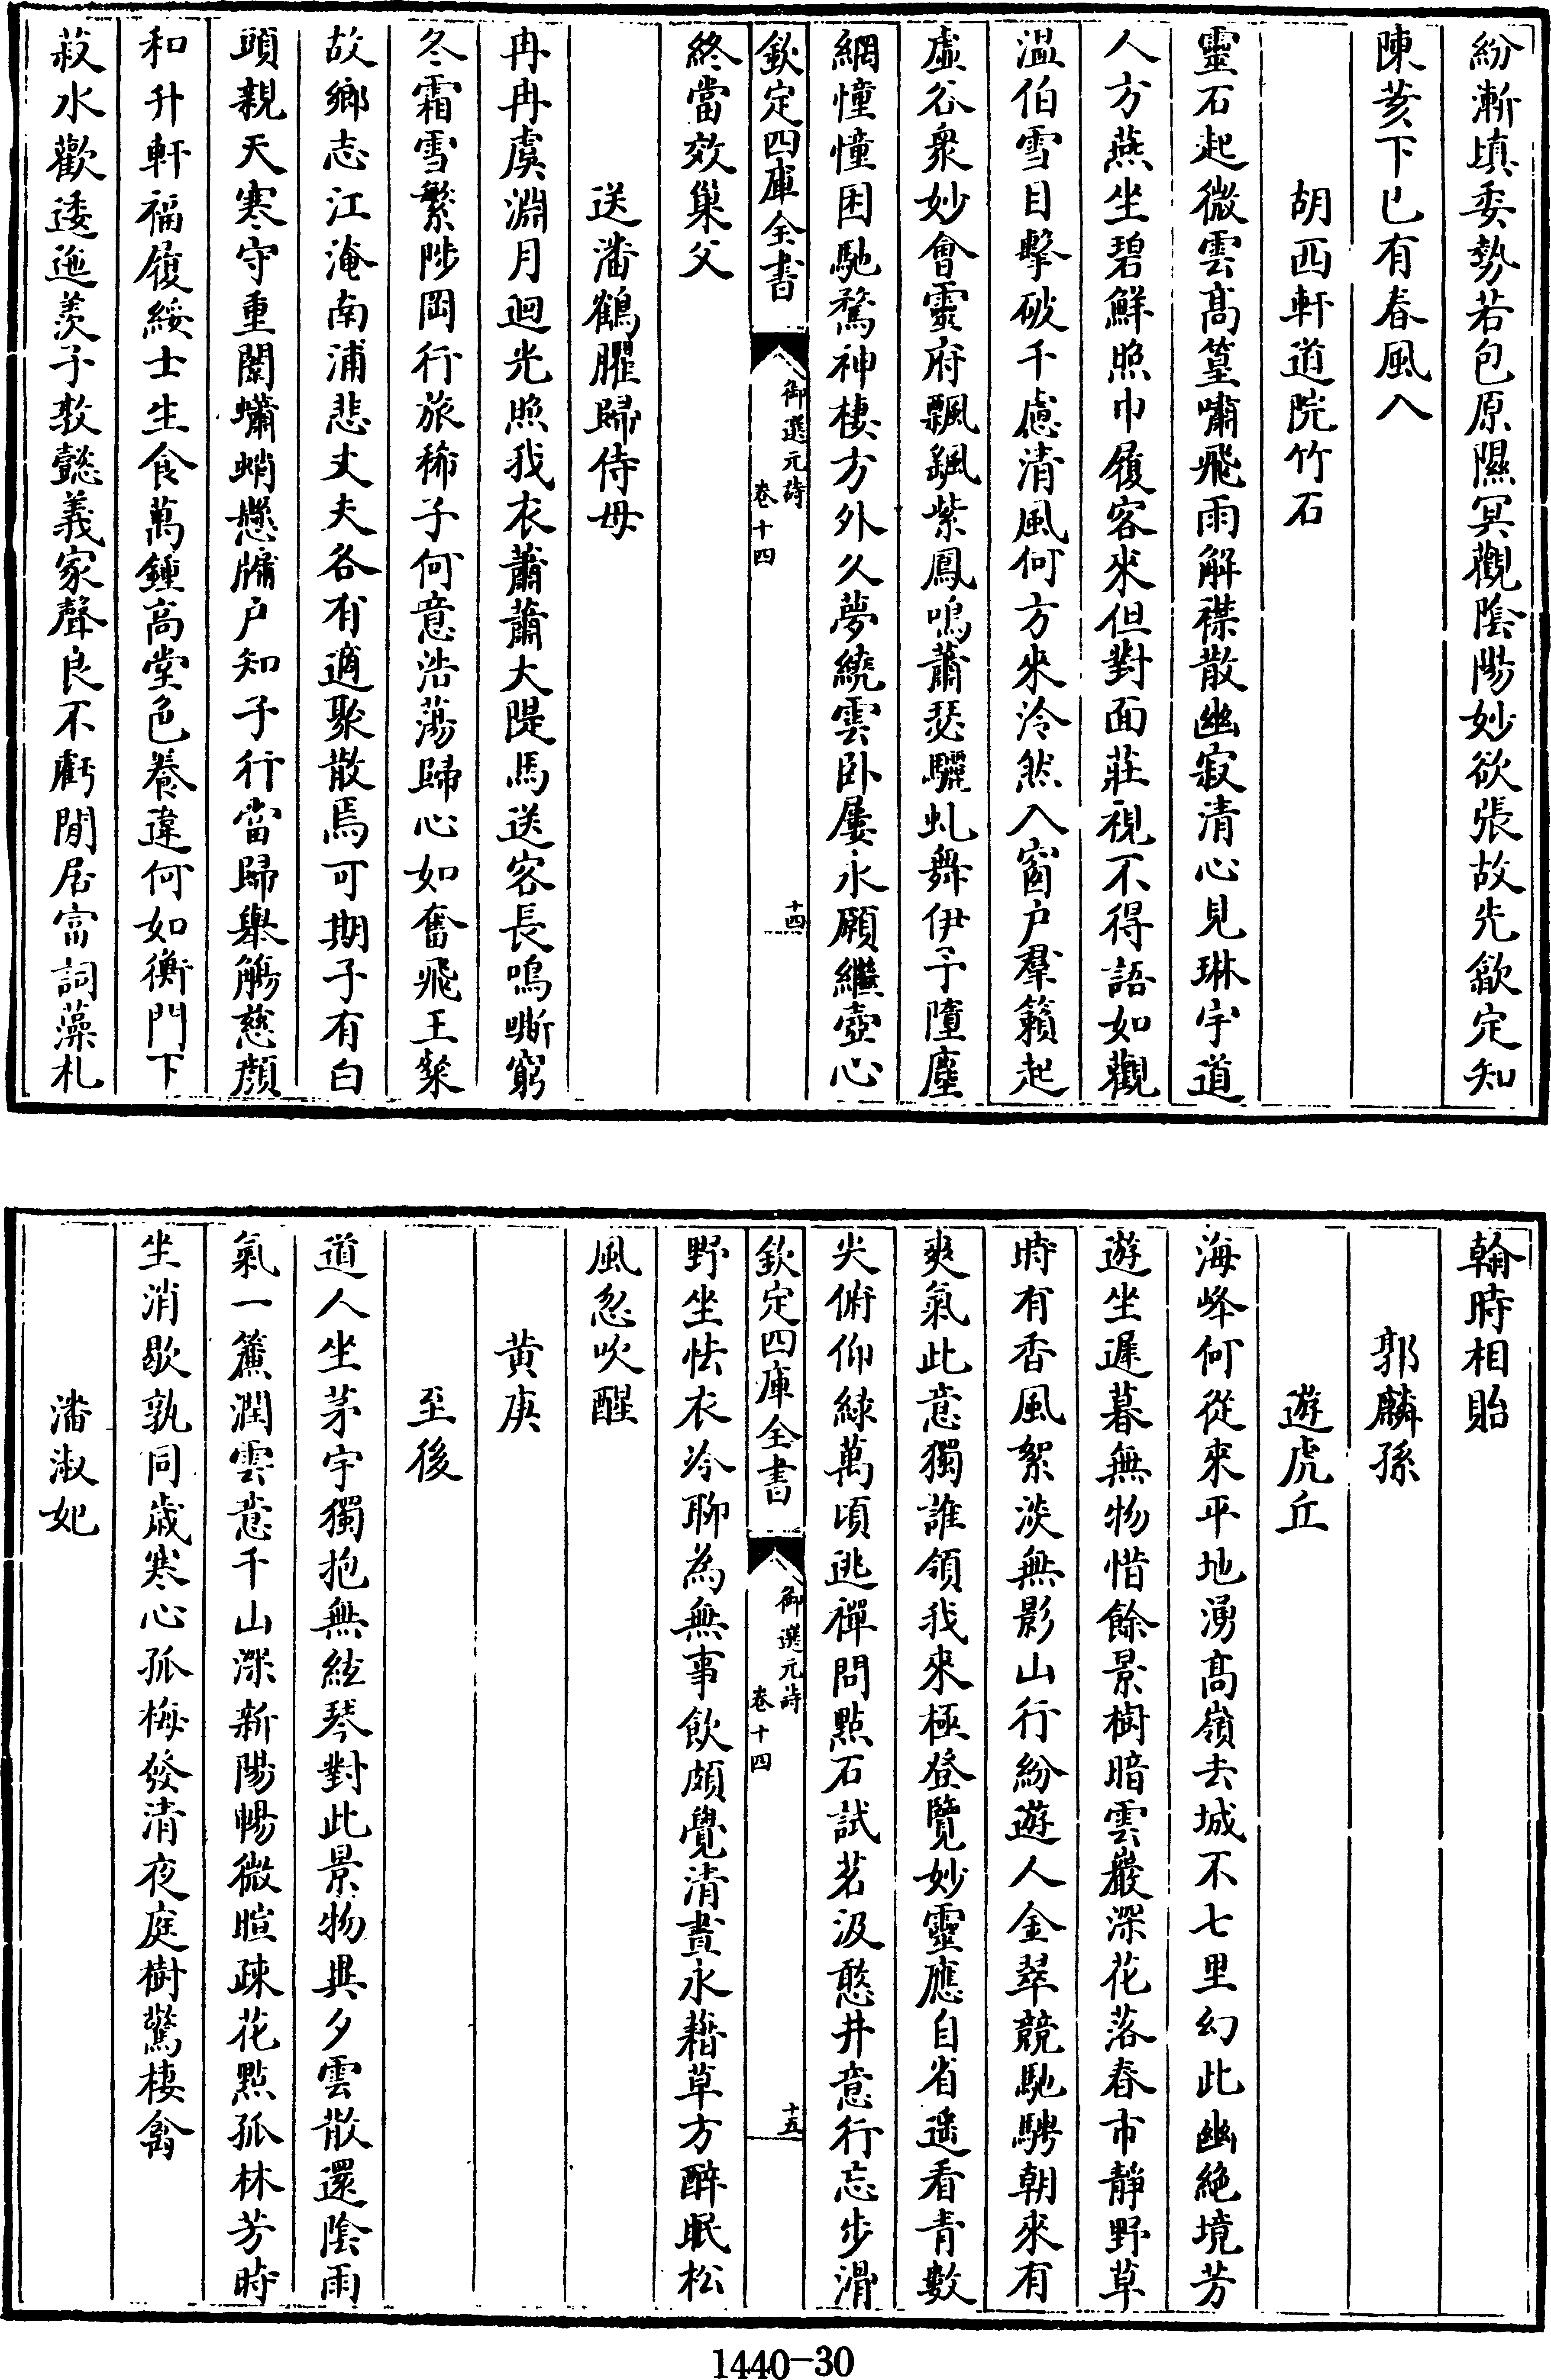 紛漸填委勢若包原隰冥觀陰陽妙欲張故先歙定知
陳荄下已有春風入
胡西軒道院竹石
靈石起微雲髙篁嘯飛雨解襟散幽寂清心見琳宇道
人方燕坐碧鮮照巾履客來但對面莊視不得語如觀
温伯雪目擊破千慮清風何方來泠然入窗户羣籟起
虚谷衆妙會靈府飄飄紫鳳鳴蕭瑟驪虬舞伊予墮塵
網憧憧困馳騖神棲方外久夢繞雲卧屢永願繼壺心
欽定四庫全書
御選元詩
卷十四
十四
終當效巢父
送潘鶴臞歸侍母
冉冉虞淵月迴光照我衣蕭蕭大隄馬送客長鳴嘶窮
冬霜雪繁陟岡行旅稀子何意浩蕩歸心如奮飛王粲
故鄉志江淹南浦悲丈夫各有適聚散焉可期子有白
頭親天寒守重闈蠨蛸懸牖户知子行當歸舉觴慈顔
和升軒福履綏士生食萬鍾高堂色養違何如衡門下
菽水歡逶迤羡子敦懿義家聲良不虧閒居富詞藻札
翰時相貽
郭麟孫
遊虎丘
海峰何從來平地湧高嶺去城不七里幻此幽絶境芳
遊坐遲暮無物惜餘景樹暗雲巖深花落春市靜野草
時有香風絮淡無影山行紛遊人金翠競馳騁朝來有
爽氣此意獨誰領我來極登覽妙靈應自省遥看青數
尖俯仰緑萬頃逃禪問點石試茗汲憨井意行忘步滑
欽定四庫全書
御選元詩
卷十四
十五
野坐怯衣冷聊為無事飲頗覺清晝永藉草方醉眠松
風忽吹醒
黄庚
至後
道人坐茅宇獨抱無絃琴對此景物異夕雲散還陰雨
氣一簾潤雲意千山深新陽暢微暄疎花點孤林芳時
坐消歇孰同歲寒心孤梅發清夜庭樹驚棲禽
潘淑妃
1440-30